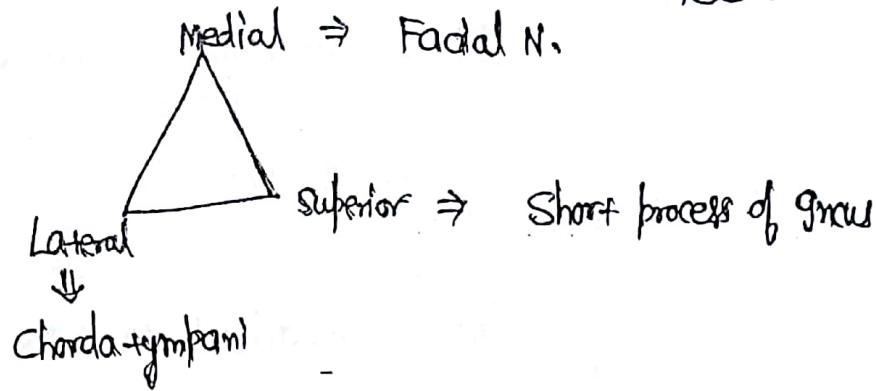 Medial ⇒ Facial N.
Superior ⇒ Short process of Incus
Lateral
⇓
Chorda tympani